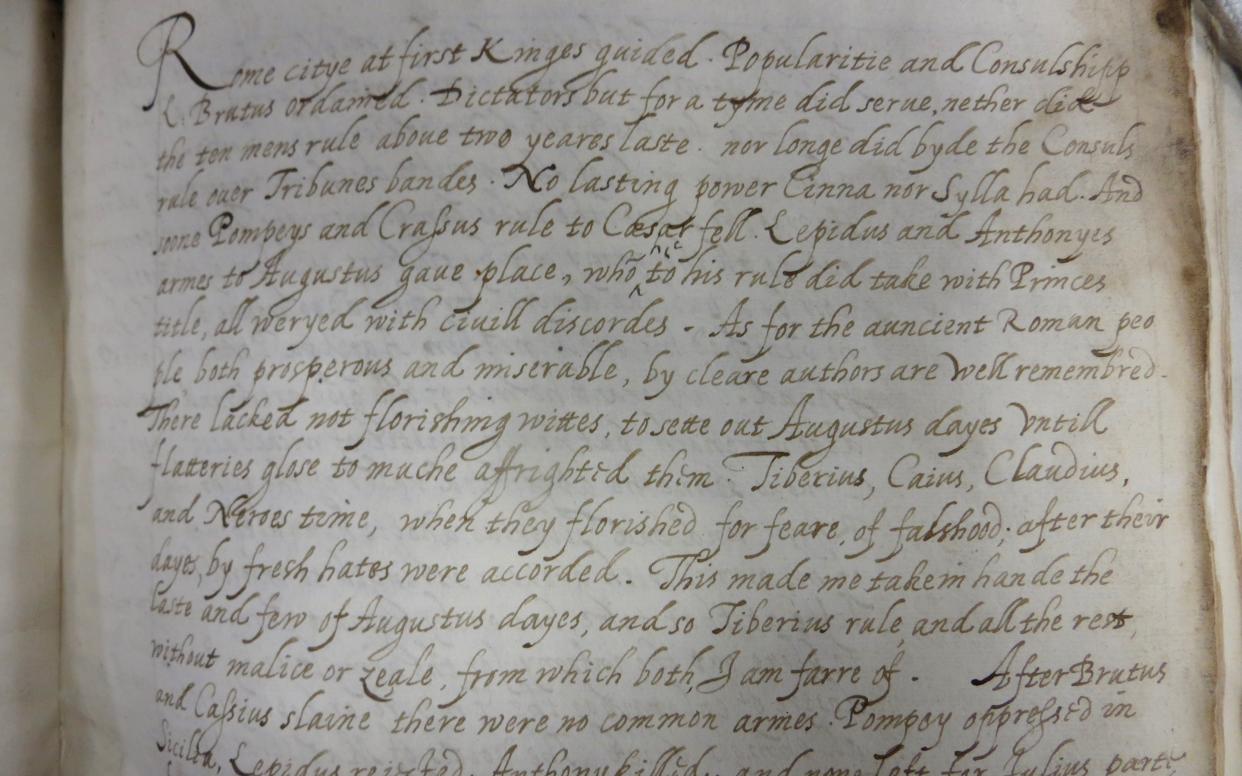 Rome citye at first Kinges guided. Popularitie and Consulshipp
L. Brutus ordained. Dictators but for a tyme did serue, nether did
the ten mens rule aboue two yeares laste. nor longe did byde the Consuls
rule ouer Tribunes bandes. No lasting power Cinna nor Sylla had. And
soone Pompeys and Crassus rule to Cæsar fell. Lepidus and Anthonyes
armes to Augustus gaue place, who to his rule did take with Princes
title, all weryed with ciuill discordes - As for the auncient Roman peo
ple both prosperous and miserable, by cleare authors are well remembred.
There lacked not florishing wittes, to sette out Augustus dayes vntill
flatteries glose to muche affrighted them. Tiberius, Caius, Claudius,
and Neroes time, when they florished for feare, of falshood; after their
dayes, by fresh hates were accorded. This made me take in hande the
laste and few of Augustus dayes, and so Tiberius rule, and all the rest,
without malice or zeale, from which both, I am farre of. After Brutus
and Cassius slaine there were no common armes. Pompey oppressed in
Sicilia, Lepidus reiected, Anthony killed, and none left for Julius parte